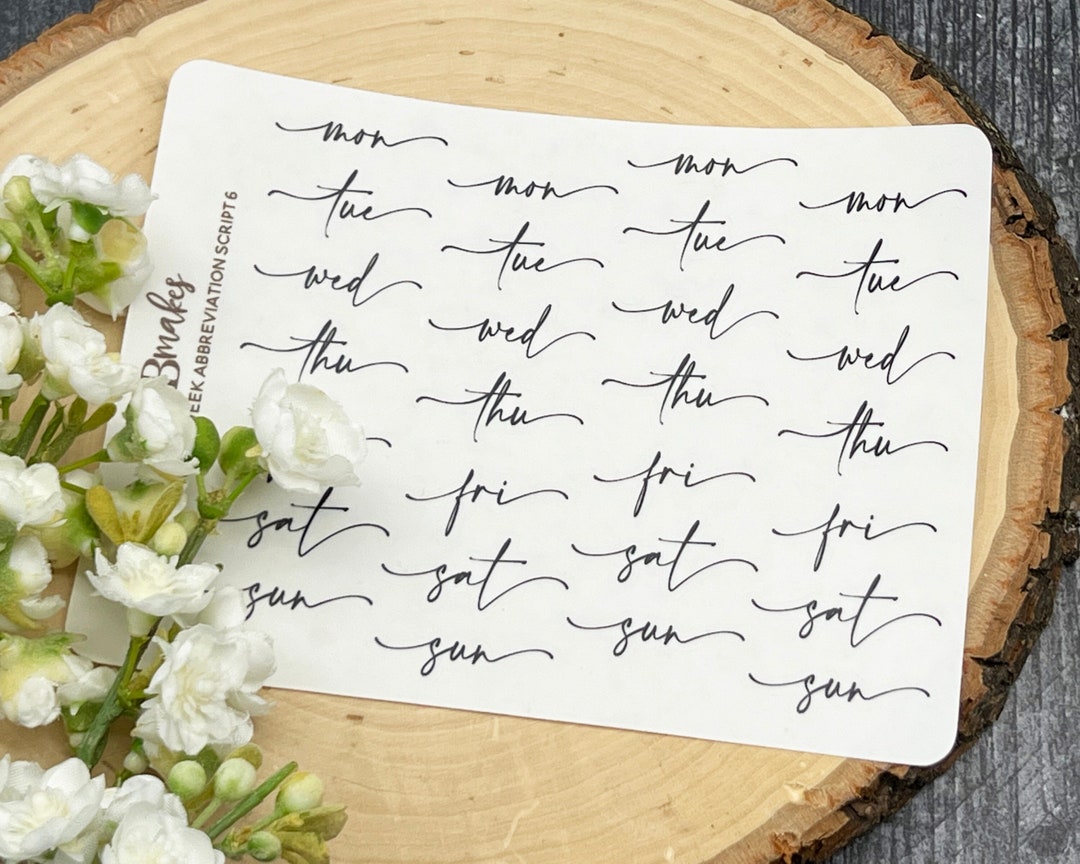 Bmakes
ABBREVIATION SCRIPT 6
mon mon mon mon
tue tue tue tue
wed wed wed wed
thu thu thu thu
fri fri fri
sat sat sat sat
sun sun sun sun